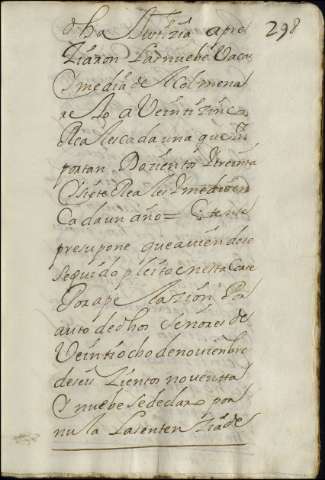 298
dha Justizia apre
ziaron las nuebe Vacas
y media de Alcolmena
a Veintizinco
Reales cada una que Yn
portan Dozientos y treinta
y siete Reales y medio en
Cada un año =
presupone que aviendose
seguido pleito en esta Corte
Por apelazion Por
auto de dhos señores de
Veintiocho de noviembre
de seis zientos noventa
y nuebe se declaro por
nula la sentenzia de